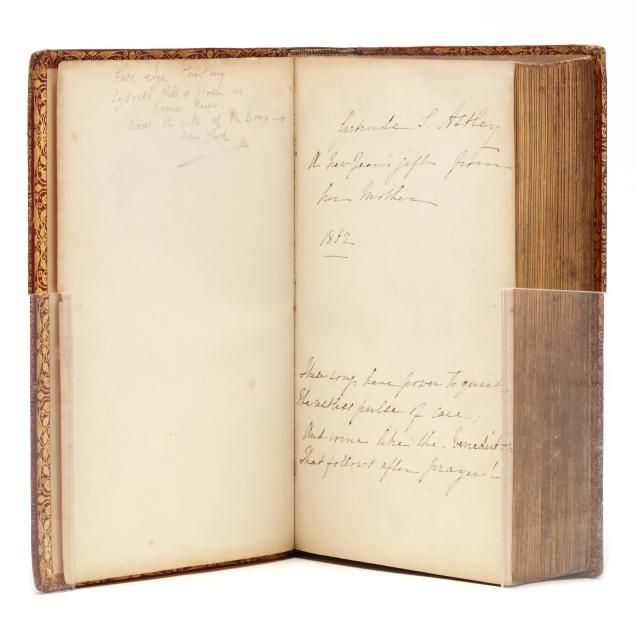 Fore edge Painting
Lydede Mill & House on
Bronx River
Now the site of the Bronx in
New York
Gertrude S. Astley
A New Year's gift from
her Mother
1862
Such songs have power to quiet
The restless pulse of care;
And come like the benediction
That follows after prayer!